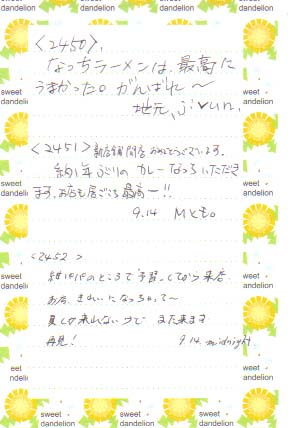 <2450>,
なっちラーメンは、最高に
うまかった。がんばれ〜
地元、
<2451> 新店舗開店おめでとうございます。
約1年ぶりの カレーなっち いただき
ます。お店も居ごこち最高ー!!
9.14 Mとも。
<2452>
のところで予習してから来店
お店、きれいになっちゃって〜
夏しか来れないので また来ます
再見! 9.14. midnight.
sweet
dandelion
sweet
dandelion
sweet
dandelion
sweet
dandelion
sweet
dandelion
sweet
dandelion
sweet
dandelion